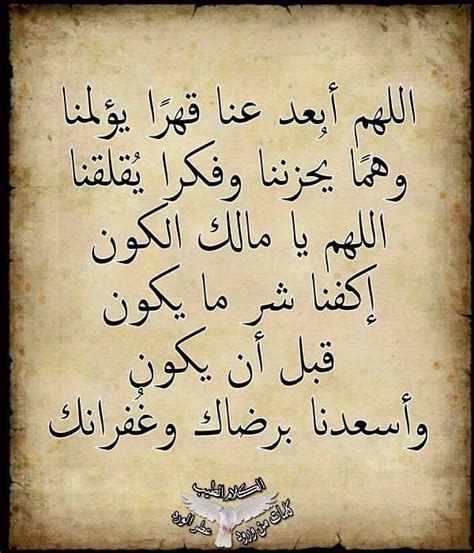 اللهم أبعد عنا قهرًا يؤلمنا
وهمًا يُحزننا وفكرا يُقلقنا
اللهم يا مالك الكون
إكفنا شر ما يكون
قبل أن يكون
وأسعدنا برضاك وغُفرانك
الكلام الطيب
كلمات من ورود
عطر الورد